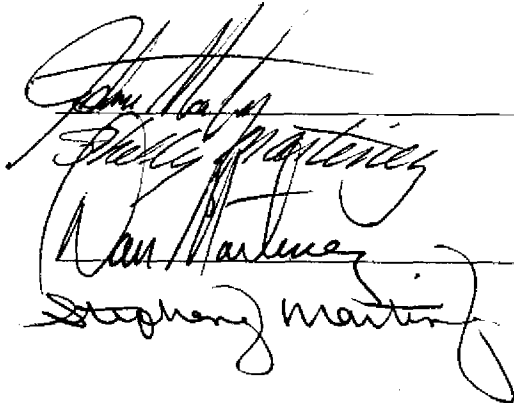 John
Shelly Martinez
Dan Martinez
Stephany Martinez